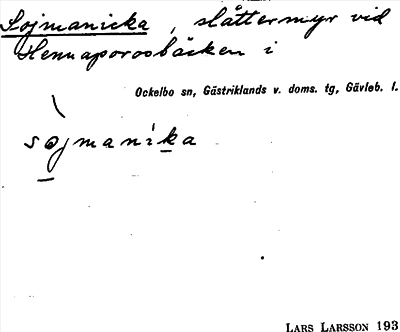 Sojmanicka, slåttermyr vid
Hennaporosbäcken i
Ockelbo sn, Gästriklands v. doms. tg, Gävleb. l.
sojmanika
LARS LARSSON 193